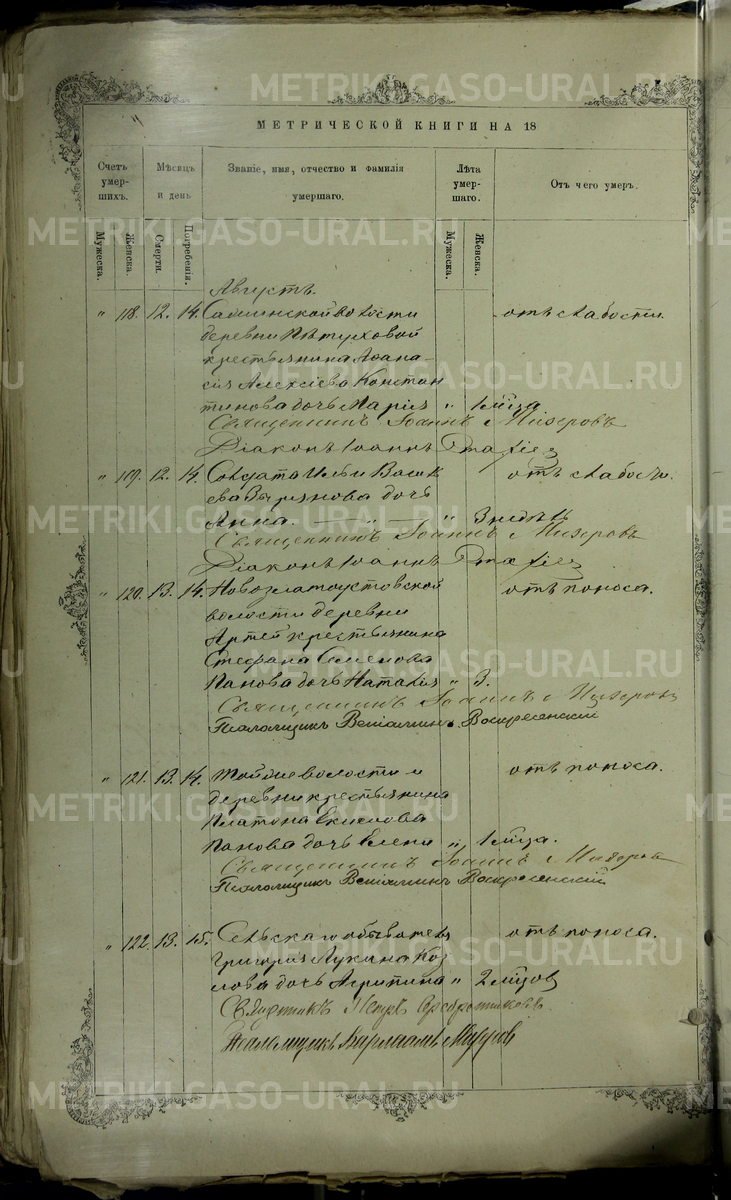 МЕТРИЧЕСКОЙ КНИГИ НА 18
Счетъ умер-шихъ.
Мѣсяцъ и день
Званіе, имя, отчество и фамилія умершаго.
Лѣта умер-шаго.
Отъ чего умеръ.
Мужеска.
Женска.
Смерти.
Погребенія.
Мужеска.
Женска.
Августъ.
" 118. 12. 14. волости отъ слабости.
деревни Пѣтуховой
крестьянина Аѳана-
сія Алексіева Констан
тинова дочь Марія " 1 мѣца
Священникъ Іоаннъ Мизеровъ
Діаконъ Іоаннъ
" 119. 12. 14. Солдата Ильи Васил отъ слабости.
ева Зырянова дочь
Анна. — " — " 3 недѣли
Священникъ Іоаннъ Мизеровъ
Діаконъ Іоаннъ
" 120. 13. 14. Новозлатоустовской отъ поноса.
волости деревни
Артей крестьянина
Стефана Семенова
Панова дочь Наталія " 3.
Священникъ Іоаннъ Мизеровъ
Псаломщикъ Веніаминъ Воскресенскій
" 121. 13. 14. Той же волости и отъ поноса.
деревни крестьянина
Платона
Панова дочь Елена " 1 мѣца.
Священникъ Іоаннъ Мизеровъ
Псаломщикъ Веніаминъ Воскресенскій
" 122. 13. 15. Сельскаго обывателя отъ поноса.
Григорія Лукина Коз
лова дочь Агрипина " 2 мѣцов
Священникъ Петръ
Псаломщикъ Варлаамъ Мизеровъ
METRIKI.GASO-URAL.RU